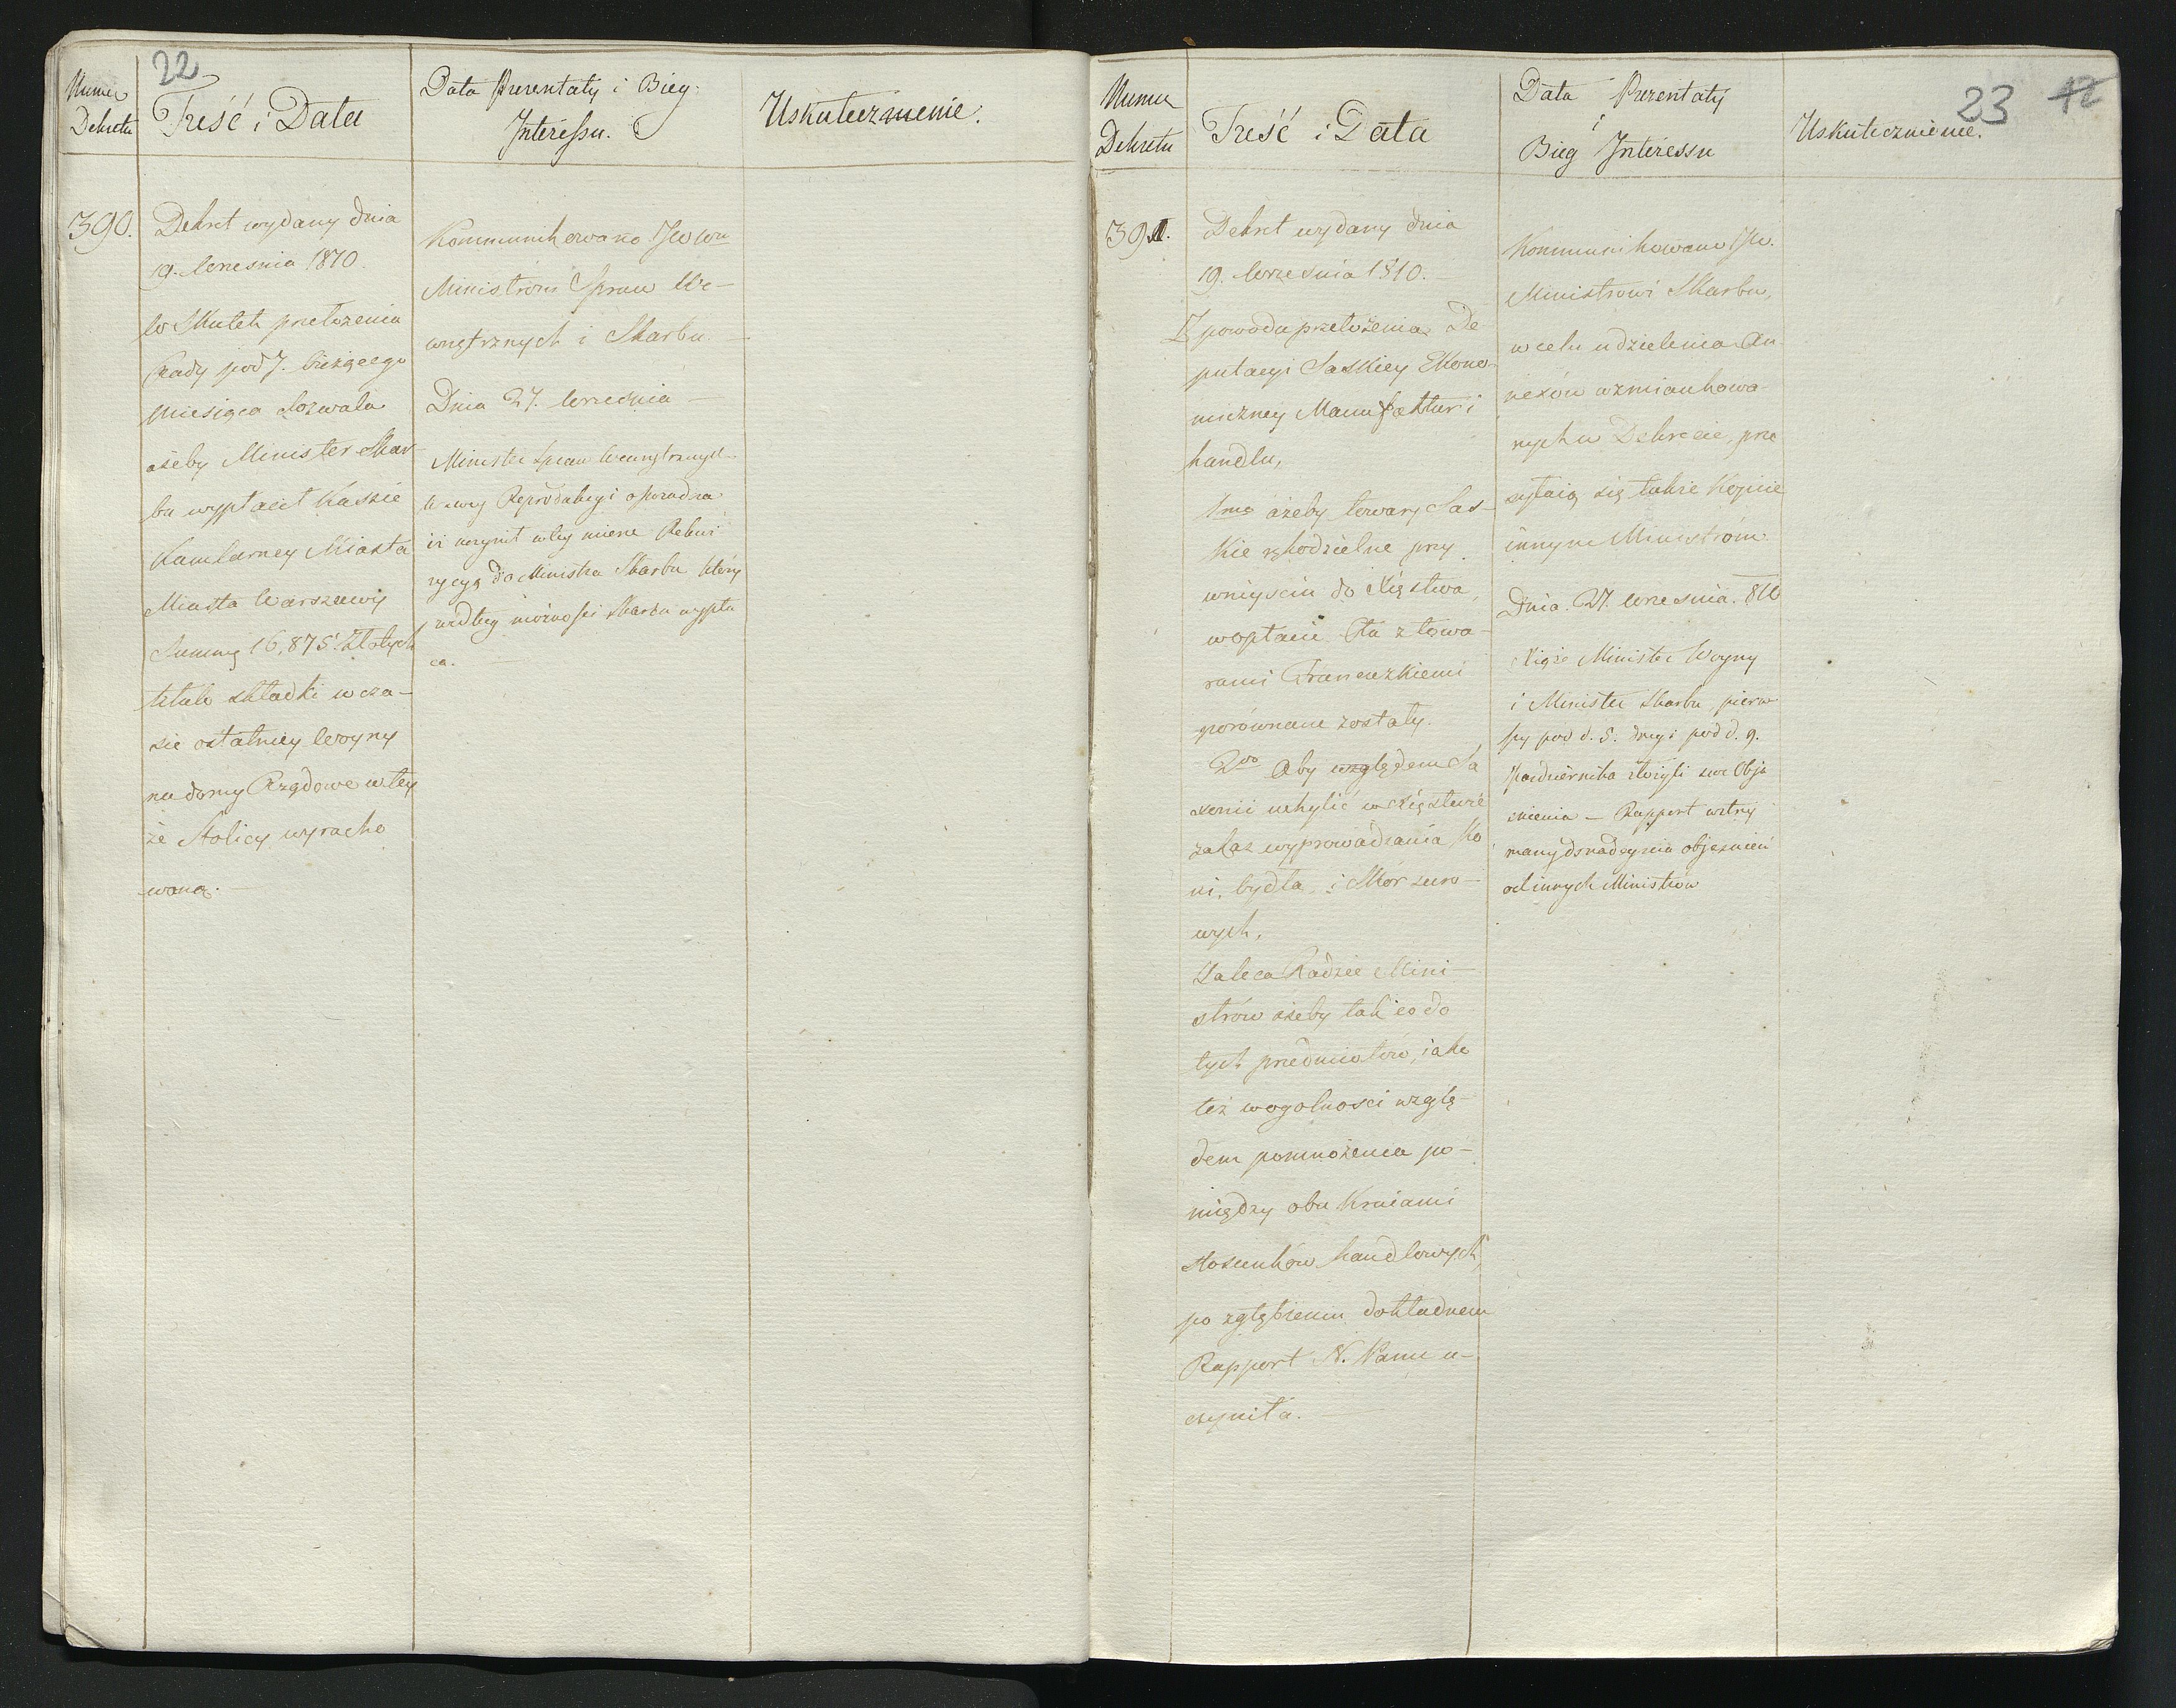 22
Numer
Dekretu
Treść i Data
Data Prezentaty i Bieg
Interessu.
Uskutecznienie.
390.
Dekret wydany dnia
19. Wrzesnia 1810.
W Skutek przełożenia
Rady pod 7. bieżącego
Miesiąca dozwala
ażeby Minister Skar-
bu wypłacił Kassie
Kamlarney Miasta
Miasta Warszawy
Summę 16,875. Złotych
tytule składki w cza-
sie ostatniey Woyny
na domy Rządowe w tey
że Stolicy wyracho
waną.
Kommunikowano JWW
Ministrom Spraw We-
wnętrznych i Skarbu.
Dnia 27. Września
Minister Spraw Wewnętrznych
w swey Reprodukcyi
iż uczynił w tey mierze Rekwi
zycyą do Ministra Skarbu który
według możności Skarbu wypła
ca.
23 12
Numer
Dekretu
Treść i Data
Data Prezentaty
i
Bieg Interessu
Uskutecznienie.
391.
Dekret wydany dnia
19. Wrzesnia 1810.
Z powodu przełożenia De
putacyi Saskiey Ekono-
miczney Manufaktur i
handlu,
1mo ażeby towary Sas-
kie rękodzielne przy
wniyściu do Xięstwa,
w opłacie Cła z towa-
rami Francuzkiemi
porównane zostały.
2do Aby względem Sa
xonii uchylić w Xięstwie
zakaz wyprowadzania Ko
ni, bydła i Skór suro-
wych,
Zaleca Radzie Mini-
strów ażeby tak co do
tych przedmiotów, iako
też w ogolności wzglę-
dem pomnożenia po-
między obu Kraiami
stosunków handlowych,
po zgłębieniu dokładnem
Rapport N. Panu u-
czyniła.
Kommunikowano JW.
Ministrowi Skarbu,
w celu udzielenia An-
nexów wzmiankowa-
nych w Dekrecie, prze
syłaią się takie Kopiie
innym Ministrom
Dnia 27. Wrzesnia. 810
Xiąże Minister Woyny
i Minister Skarbu, pierw
szy pod d. 5. drugi pod d. 9.
Pazdziernika złożyli swe Obja
snienia — Rapport wstrzy
many do nadeyscia objasnień
od innych Ministrów